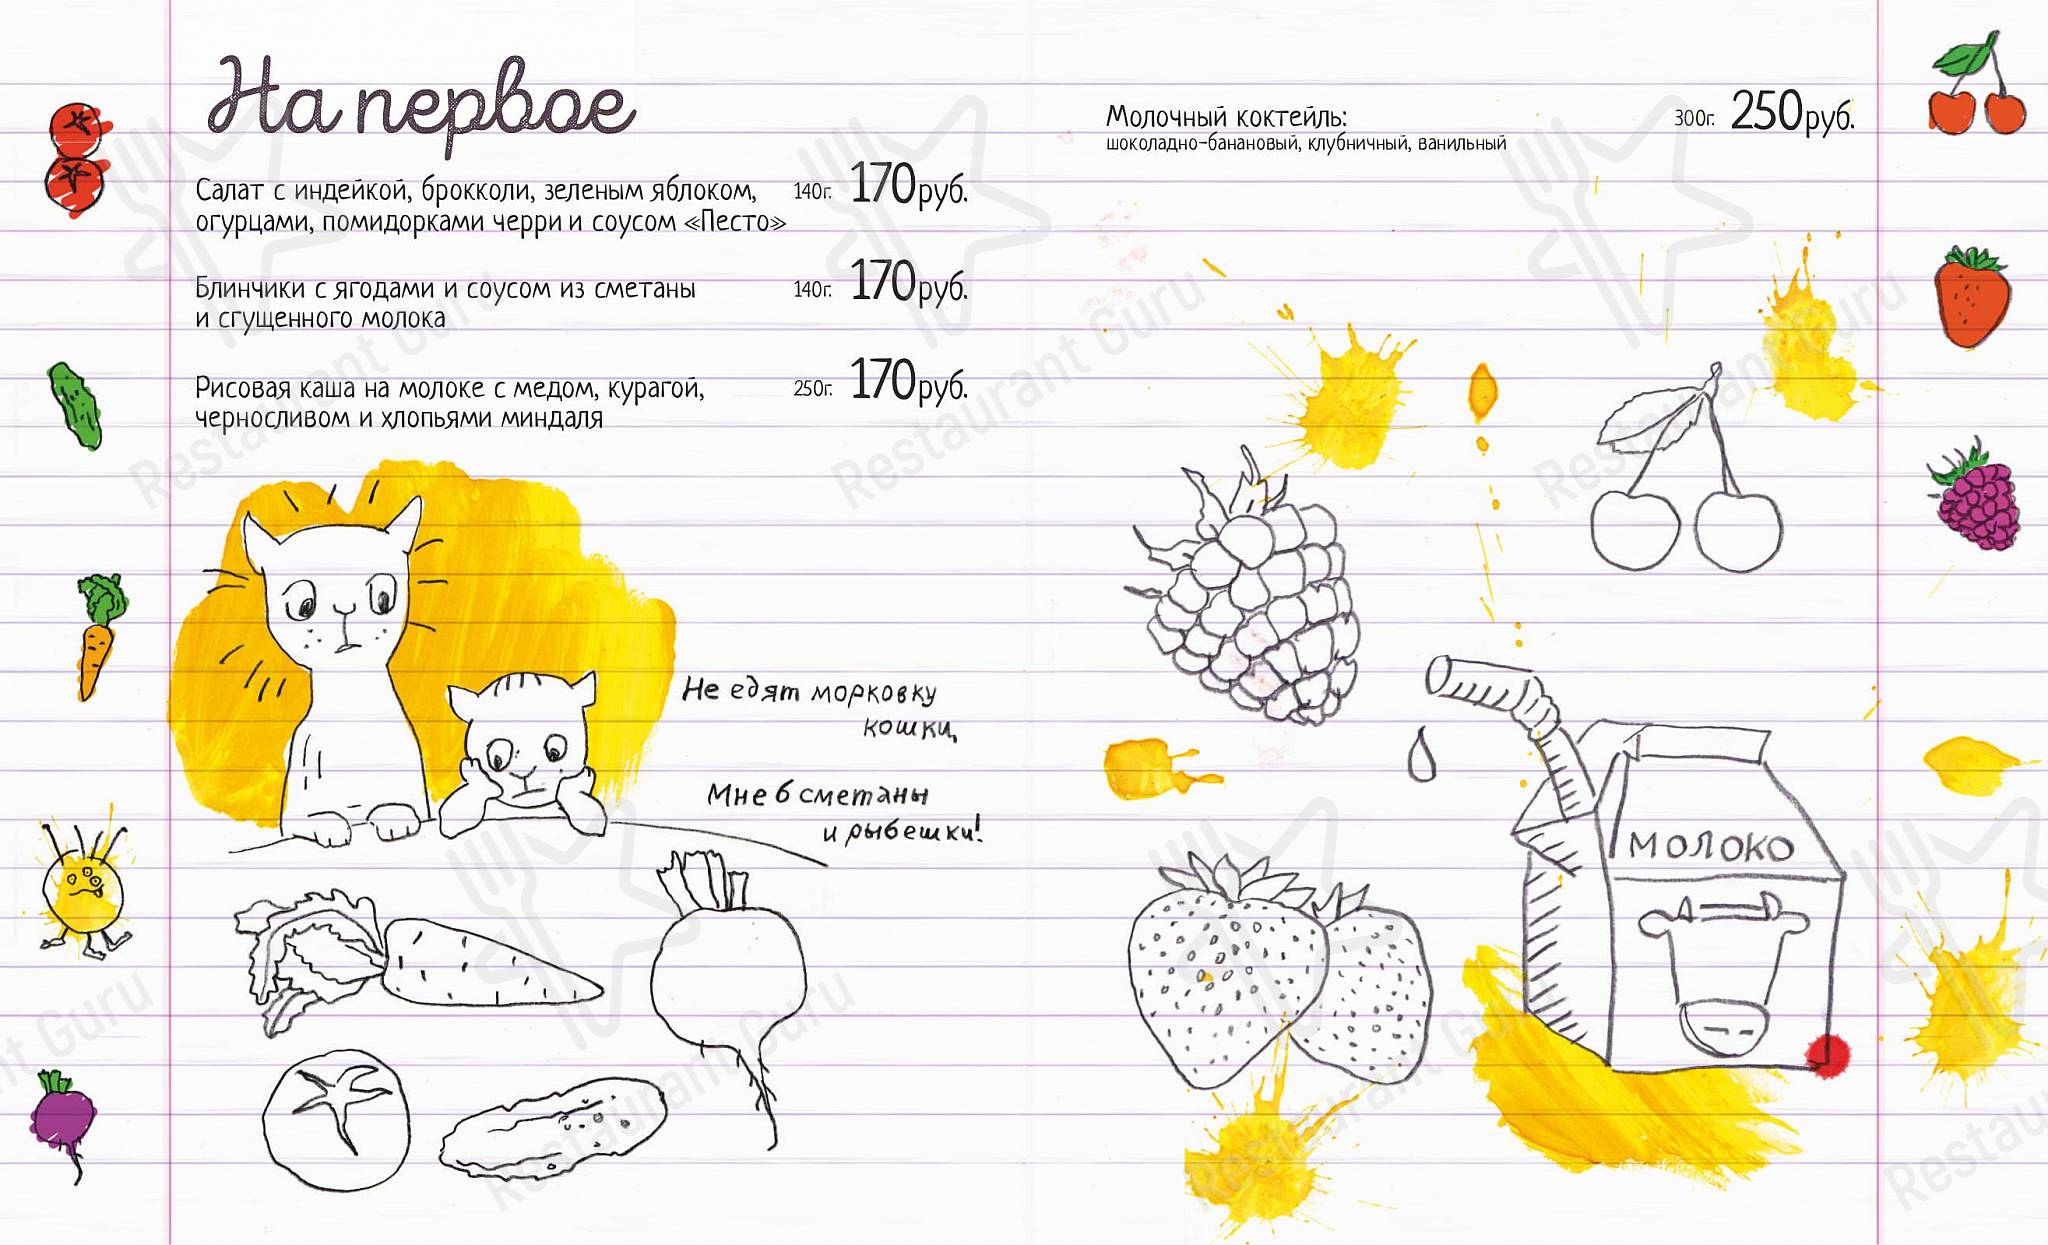 На первое
Салат с индейкой, брокколи, зеленым яблоком, 140г. 170руб.
огурцами, помидорками черри и соусом «Песто»
Блинчики с ягодами и соусом из сметаны 140г. 170руб.
и сгущенного молока
Рисовая каша на молоке с медом, курагой, 250г. 170руб.
черносливом и хлопьями миндаля
Не едят морковку
кошки,
Мне б сметаны
и рыбешки!
Молочный коктейль: 300г. 250руб.
шоколадно-банановый, клубничный, ванильный
МОЛОКО
Restaurant Guru
Restaurant Guru
Restaurant Guru
Restaurant Guru
Restaurant Guru
Restaurant Guru